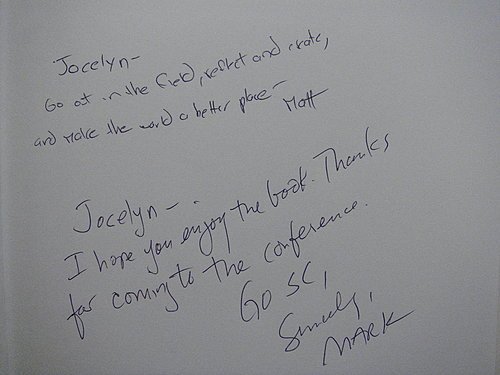 Jocelyn-
Go out in the field, reflect and create,
and make the world a better place-
Matt
Jocelyn-
I hope you enjoy the book. Thanks
for coming to the conference.
GO SC,
Sincerely,
MARK